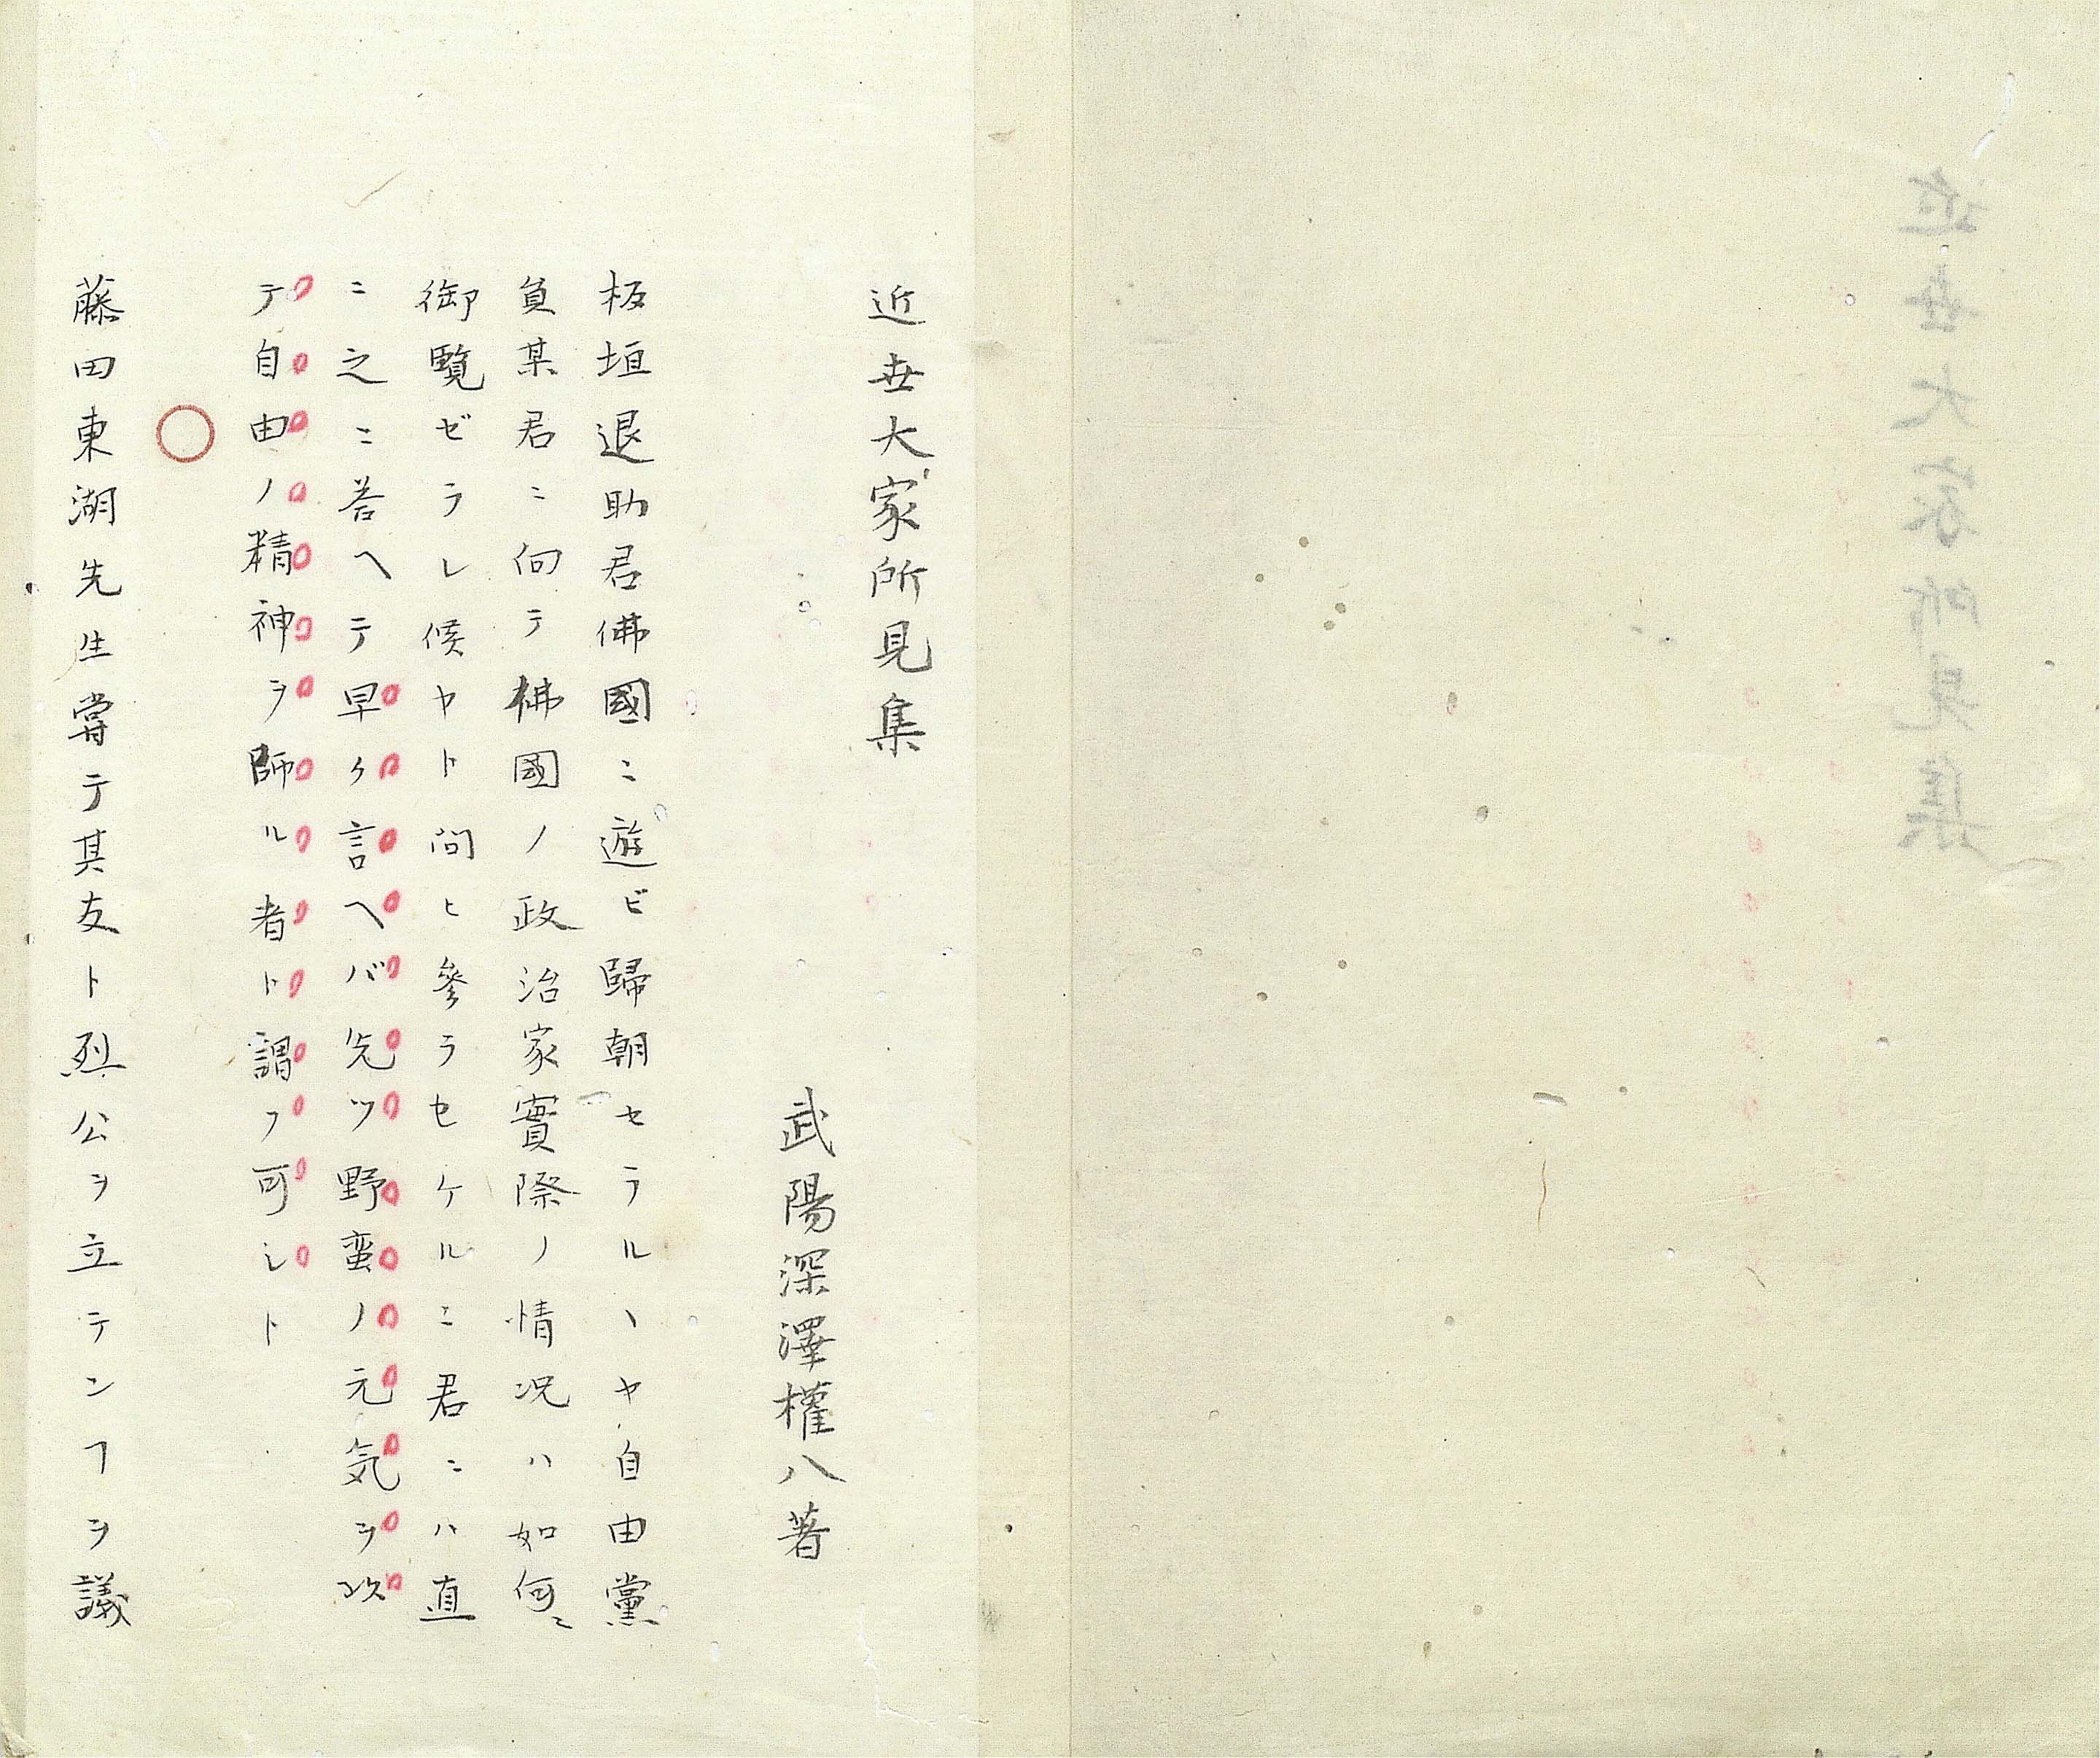 近世大家所見集
武陽深澤權八著
板垣退助君佛國ニ遊ビ歸朝セラルヽヤ自由黨
員某君ニ向テ佛國ノ政治家實際ノ情況ハ如何ニ
御覽ゼラレ候ヤト問ヒ參ラセケルニ君ニハ直
ニ之ニ荅ヘテ早ク言ヘバ先ツ野蛮ノ元気ヲ以
テ自由ノ精神ヲ師ル者ト謂フ可シト
藤田東湖先生嘗テ其友ト烈公ヲ立テンヿヲ議